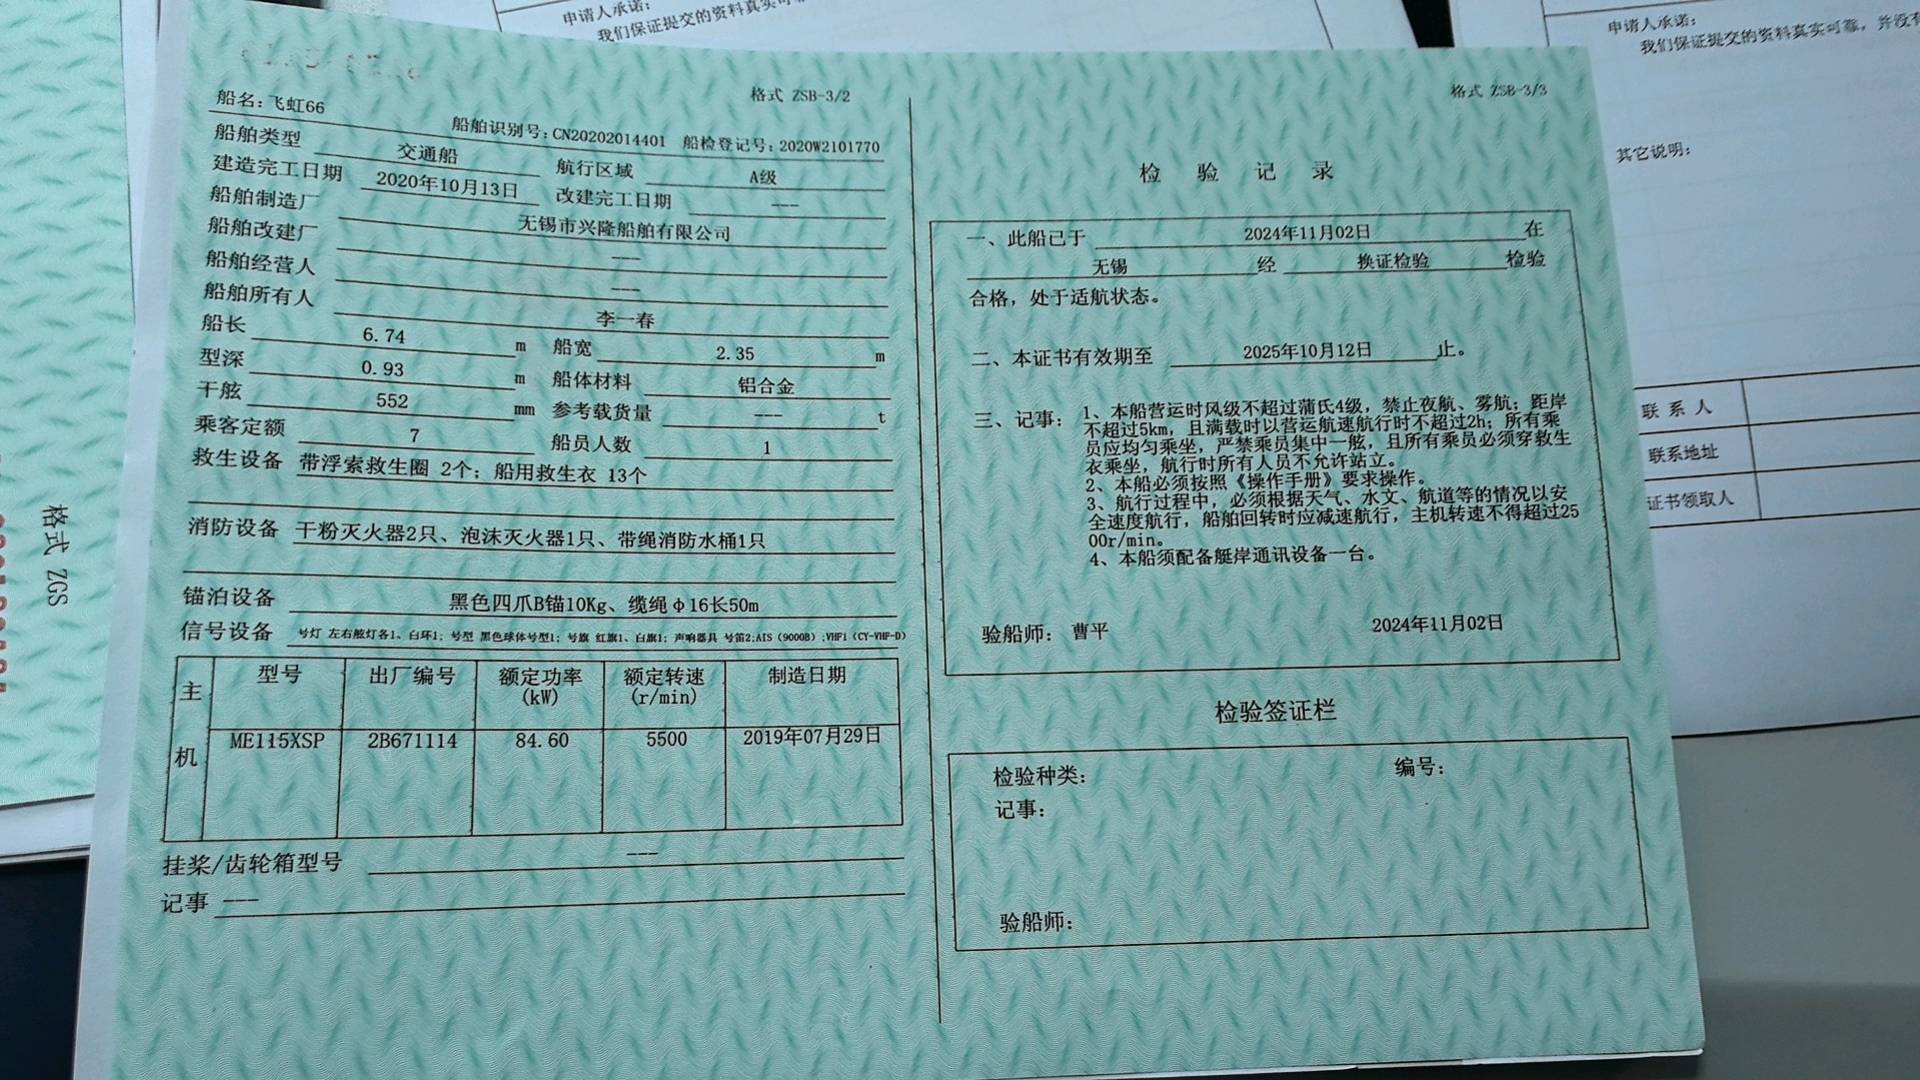 申请人承诺:
我们保证提交的资料真实可靠
格式 ZGS
格式 ZSB-3/2
船名: 飞虹66
船舶识别号: CN20202014401 船检登记号: 2020W2101770
船舶类型 交通船 航行区域 A级
建造完工日期 2020年10月13日 改建完工日期 ---
船舶制造厂 无锡市兴隆船舶有限公司
船舶改建厂 ---
船舶经营人 ---
船舶所有人 李一春
船长 6.74 m 船宽 2.35 m
型深 0.93 m 船体材料 铝合金
干舷 552 mm 参考载货量 --- t
乘客定额 7 船员人数 1
救生设备 带浮索救生圈 2个; 船用救生衣 13个
消防设备 干粉灭火器2只、泡沫灭火器1只、带绳消防水桶1只
锚泊设备 黑色四爪B锚10Kg、缆绳φ16长50m
信号设备 号灯 左右舷灯各1、白环1; 号型 黑色球体号型1; 号旗 红旗1、白旗1; 声响器具 号笛2;AIS (9000B) ;VHF1 (CY-VHF-D)
主机 型号 出厂编号 额定功率 额定转速 制造日期
(kW) (r/min)
ME115XSP 2B671114 84.60 5500 2019年07月29日
挂桨/齿轮箱型号 ---
记事 ---
格式 ZSB-3/3
检 验 记 录
一、此船已于 2024年11月02日 在
无锡 经 换证检验 检验
合格，处于适航状态。
二、本证书有效期至 2025年10月12日 止。
三、记事: 1、本船营运时风级不超过蒲氏4级，禁止夜航、雾航; 距岸
不超过5km，且满载时以营运航速航行时不超过2h; 所有乘
员应均匀乘坐，严禁乘员集中一舷，且所有乘员必须穿救生
衣乘坐，航行时所有人员不允许站立。
2、本船必须按照《操作手册》要求操作。
3、航行过程中，必须根据天气、水文、航道等的情况以安
全速度航行，船舶回转时应减速航行，主机转速不得超过25
00r/min。
4、本船须配备艇岸通讯设备一台。
验船师: 曹平 2024年11月02日
检验签证栏
检验种类: 编号:
记事:
验船师:
申请人承诺:
我们保证提交的资料真实可靠，并没有
其它说明:
联 系 人
联系地址
证书领取人